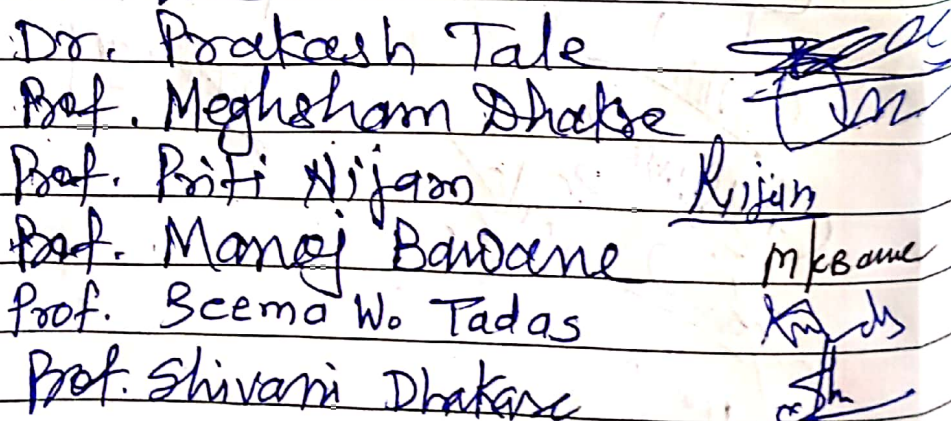 Dr. Prakash Tale
Prof. Meghsham Dhakse
Prof. Priti Nijam Rijam
Prof. Manoj Bawane MKBawne
Prof. Seema W. Tadas
Prof. Shivani Dhakase